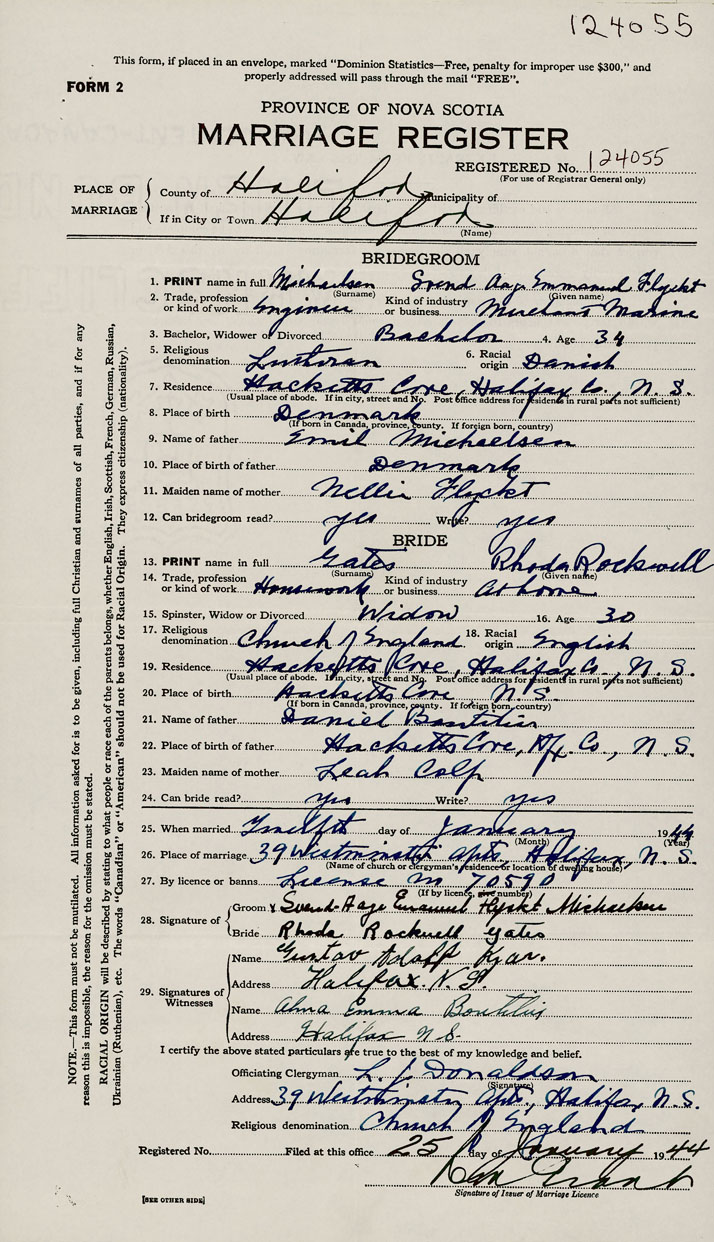 124055
This form, if placed in an envelope, marked "Dominion Statistics—Free, penalty for improper use $300," and
properly addressed will pass through the mail "FREE".
FORM 2
PROVINCE OF NOVA SCOTIA
MARRIAGE REGISTER
REGISTERED No. 124055
(For use of Registrar General only)
PLACE OF MARRIAGE
County of Halifax Municipality of
If in City or Town Halifax
(Name)
BRIDEGROOM
1. PRINT name in full Michaelsen Svend Aage Emmanuel Flyckt
(Surname) (Given name)
2. Trade, profession or kind of work Engineer Kind of industry or business Merchant Marine
3. Bachelor, Widower or Divorced Bachelor 4. Age 34
5. Religious denomination Lutheran 6. Racial origin Danish
7. Residence Hacketts Cove, Halifax Co., N. S.
(Usual place of abode. If in city, street and No. Post office address for residents in rural parts not sufficient)
8. Place of birth Denmark
(If born in Canada, province, county. If foreign born, country)
9. Name of father Emil Michaelsen
10. Place of birth of father Denmark
11. Maiden name of mother Nellie Flyckt
12. Can bridegroom read? yes Write? yes
BRIDE
13. PRINT name in full Yates Rhoda Rockwell
(Surname) (Given name)
14. Trade, profession or kind of work Housework Kind of industry or business At home
15. Spinster, Widow or Divorced Widow 16. Age 30
17. Religious denomination Church of England 18. Racial origin English
19. Residence Hacketts Cove, Halifax Co., N. S.
(Usual place of abode. If in city, street and No. Post office address for residents in rural parts not sufficient)
20. Place of birth Hacketts Cove N. S.
(If born in Canada, province, county. If foreign born, country)
21. Name of father Daniel Boutilier
22. Place of birth of father Hacketts Cove, Hfx. Co., N. S.
23. Maiden name of mother Leah Colp
24. Can bride read? yes Write? yes
25. When married Twelfth day of January 1944
(Month) (Year)
26. Place of marriage 39 Westminster Apts, Halifax, N. S.
(Name of church or clergyman's residence or location of dwelling house)
27. By licence or banns License No 70590
(If by licence, give number)
28. Signature of
Groom x Svend Aage Emanuel Flyckt Michaelsen
Bride Rhoda Rockwell Yates
29. Signatures of Witnesses
Name Gustav Adolf
Address Halifax. N. S.
Name Alma Emma Boutilier
Address Halifax N S.
I certify the above stated particulars are true to the best of my knowledge and belief.
Officiating Clergyman L. J. Donaldson
(Signature)
Address 39 Westminster Apts, Halifax, N. S.
Religious denomination Church of England
Registered No. Filed at this office 25 day of January 1944
Signature of Issuer of Marriage Licence
[SEE OTHER SIDE]
NOTE.—This form must not be mutilated. All information asked for is to be given, including full Christian and surnames of all parties, and if for any
reason this is impossible, the reason for the omission must be stated.
RACIAL ORIGIN will be described by stating to what people or race each of the parents belongs, whether English, Irish, Scottish, French, German, Russian,
Ukrainian (Ruthenian), etc. The words "Canadian" or "American" should not be used for Racial Origin. They express citizenship (nationality).